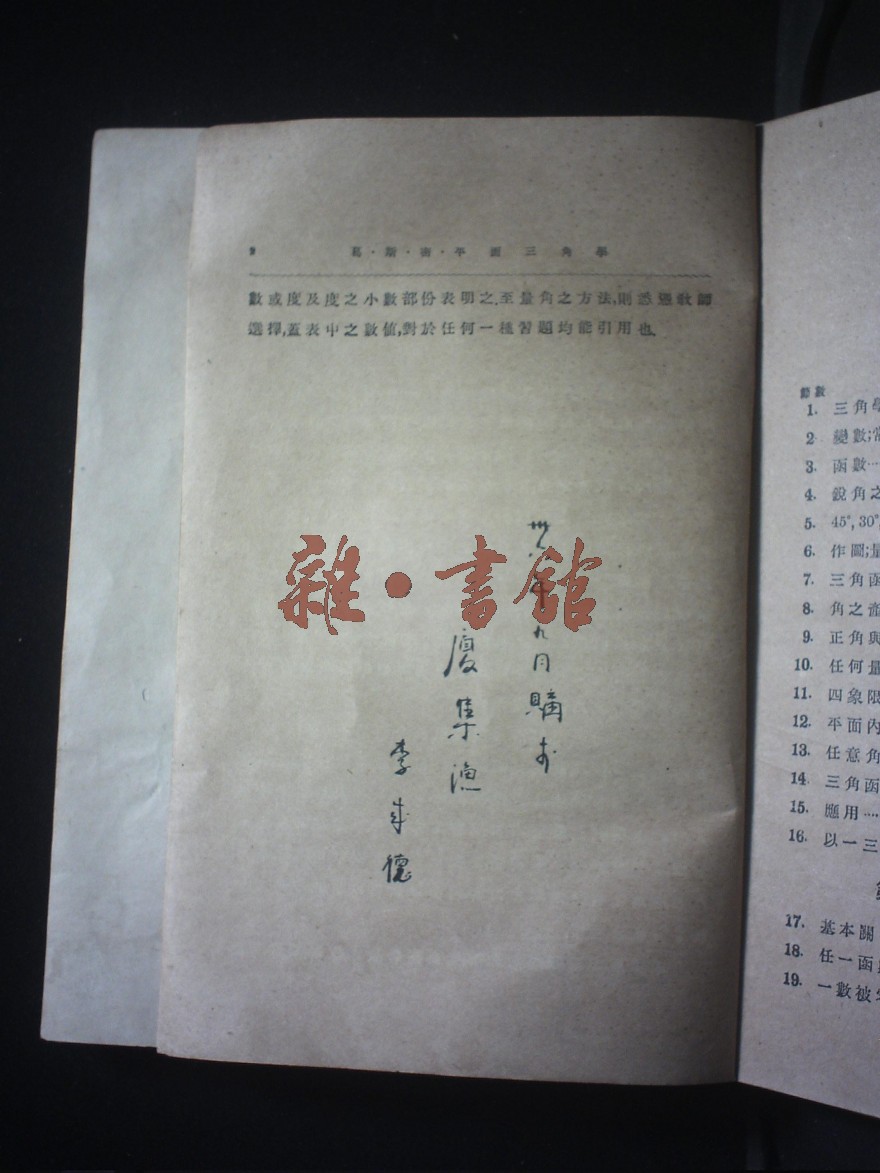 葛・斯・密・平面三角學
數或度及度之小數部份表明之.至量角之方法,則悉憑敎師
選擇,蓋表中之數値,對於任何一種習題均能引用也.
雜・書館
年九月購于
廈集漁
李成德
節數
1. 三角學
2 變數;常
3. 函數…
4. 銳角之
5. 45°, 30°,
6. 作圖;量
7. 三角函
8. 角之
9. 正角與
10. 任何量
11. 四象限
12. 平面內
13. 任意角
14 三角函
15. 應用…
16. 以一三
17. 基本關
18. 任一函數
19. 一數被